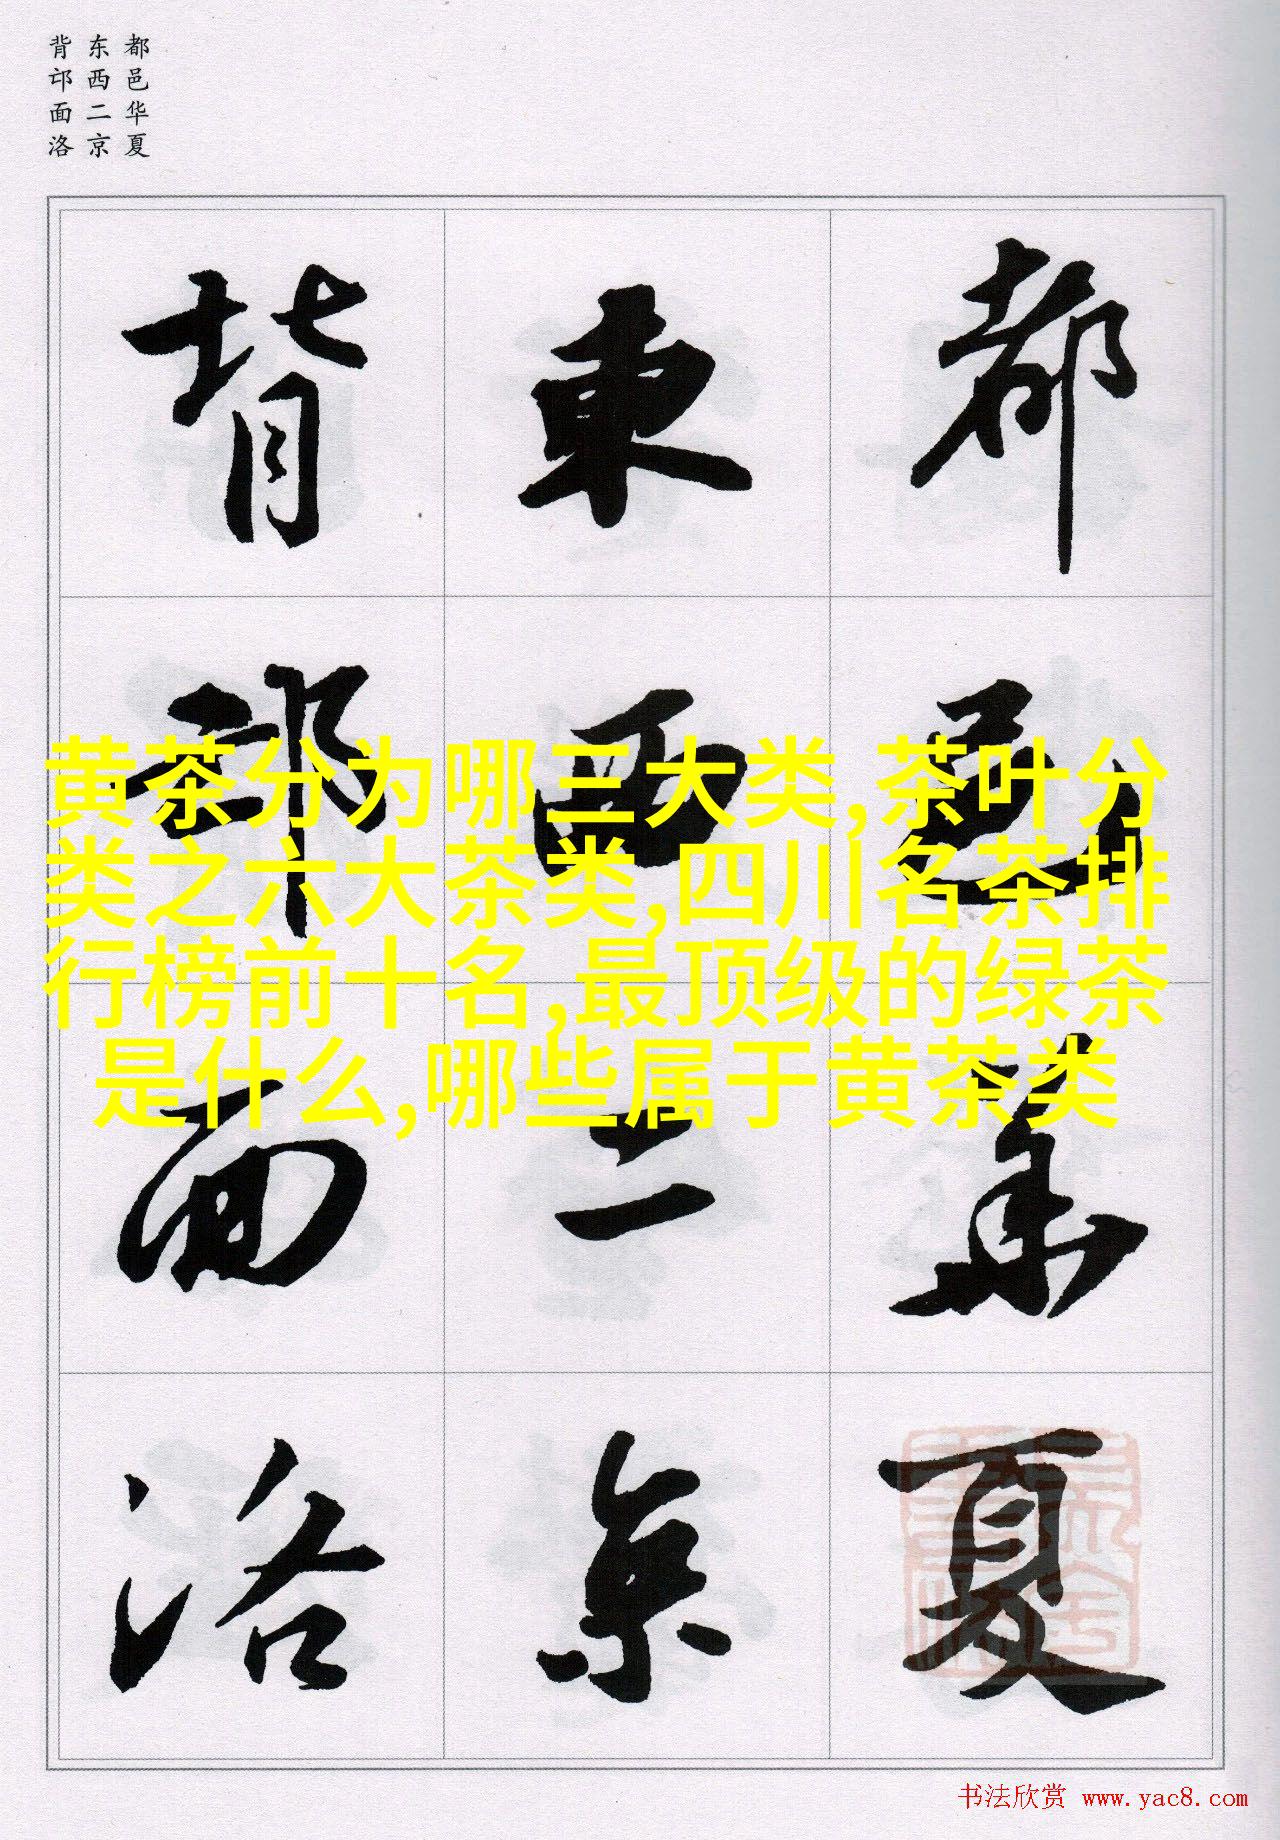 都邑华夏
东西二京
背邙面洛
都邑華夏
東西二京
背邙面洛
黄茶分为哪三大类,茶叶分
类之六大茶类,四川名茶排
行榜前十名,最顶级的绿茶
是什么,哪些属于黄茶类
书法欣赏 www.yac8.com